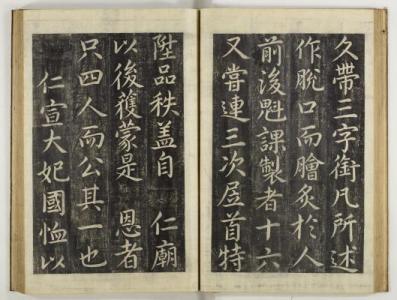 久帶三字銜凡所述
作脫口而膾炙於人
前後魁課製者十六
又嘗連三次居首特
陞品秩盖自 仁廟
以後獲蒙是 恩者
只四人而公其一也
仁宣大妃國恤以